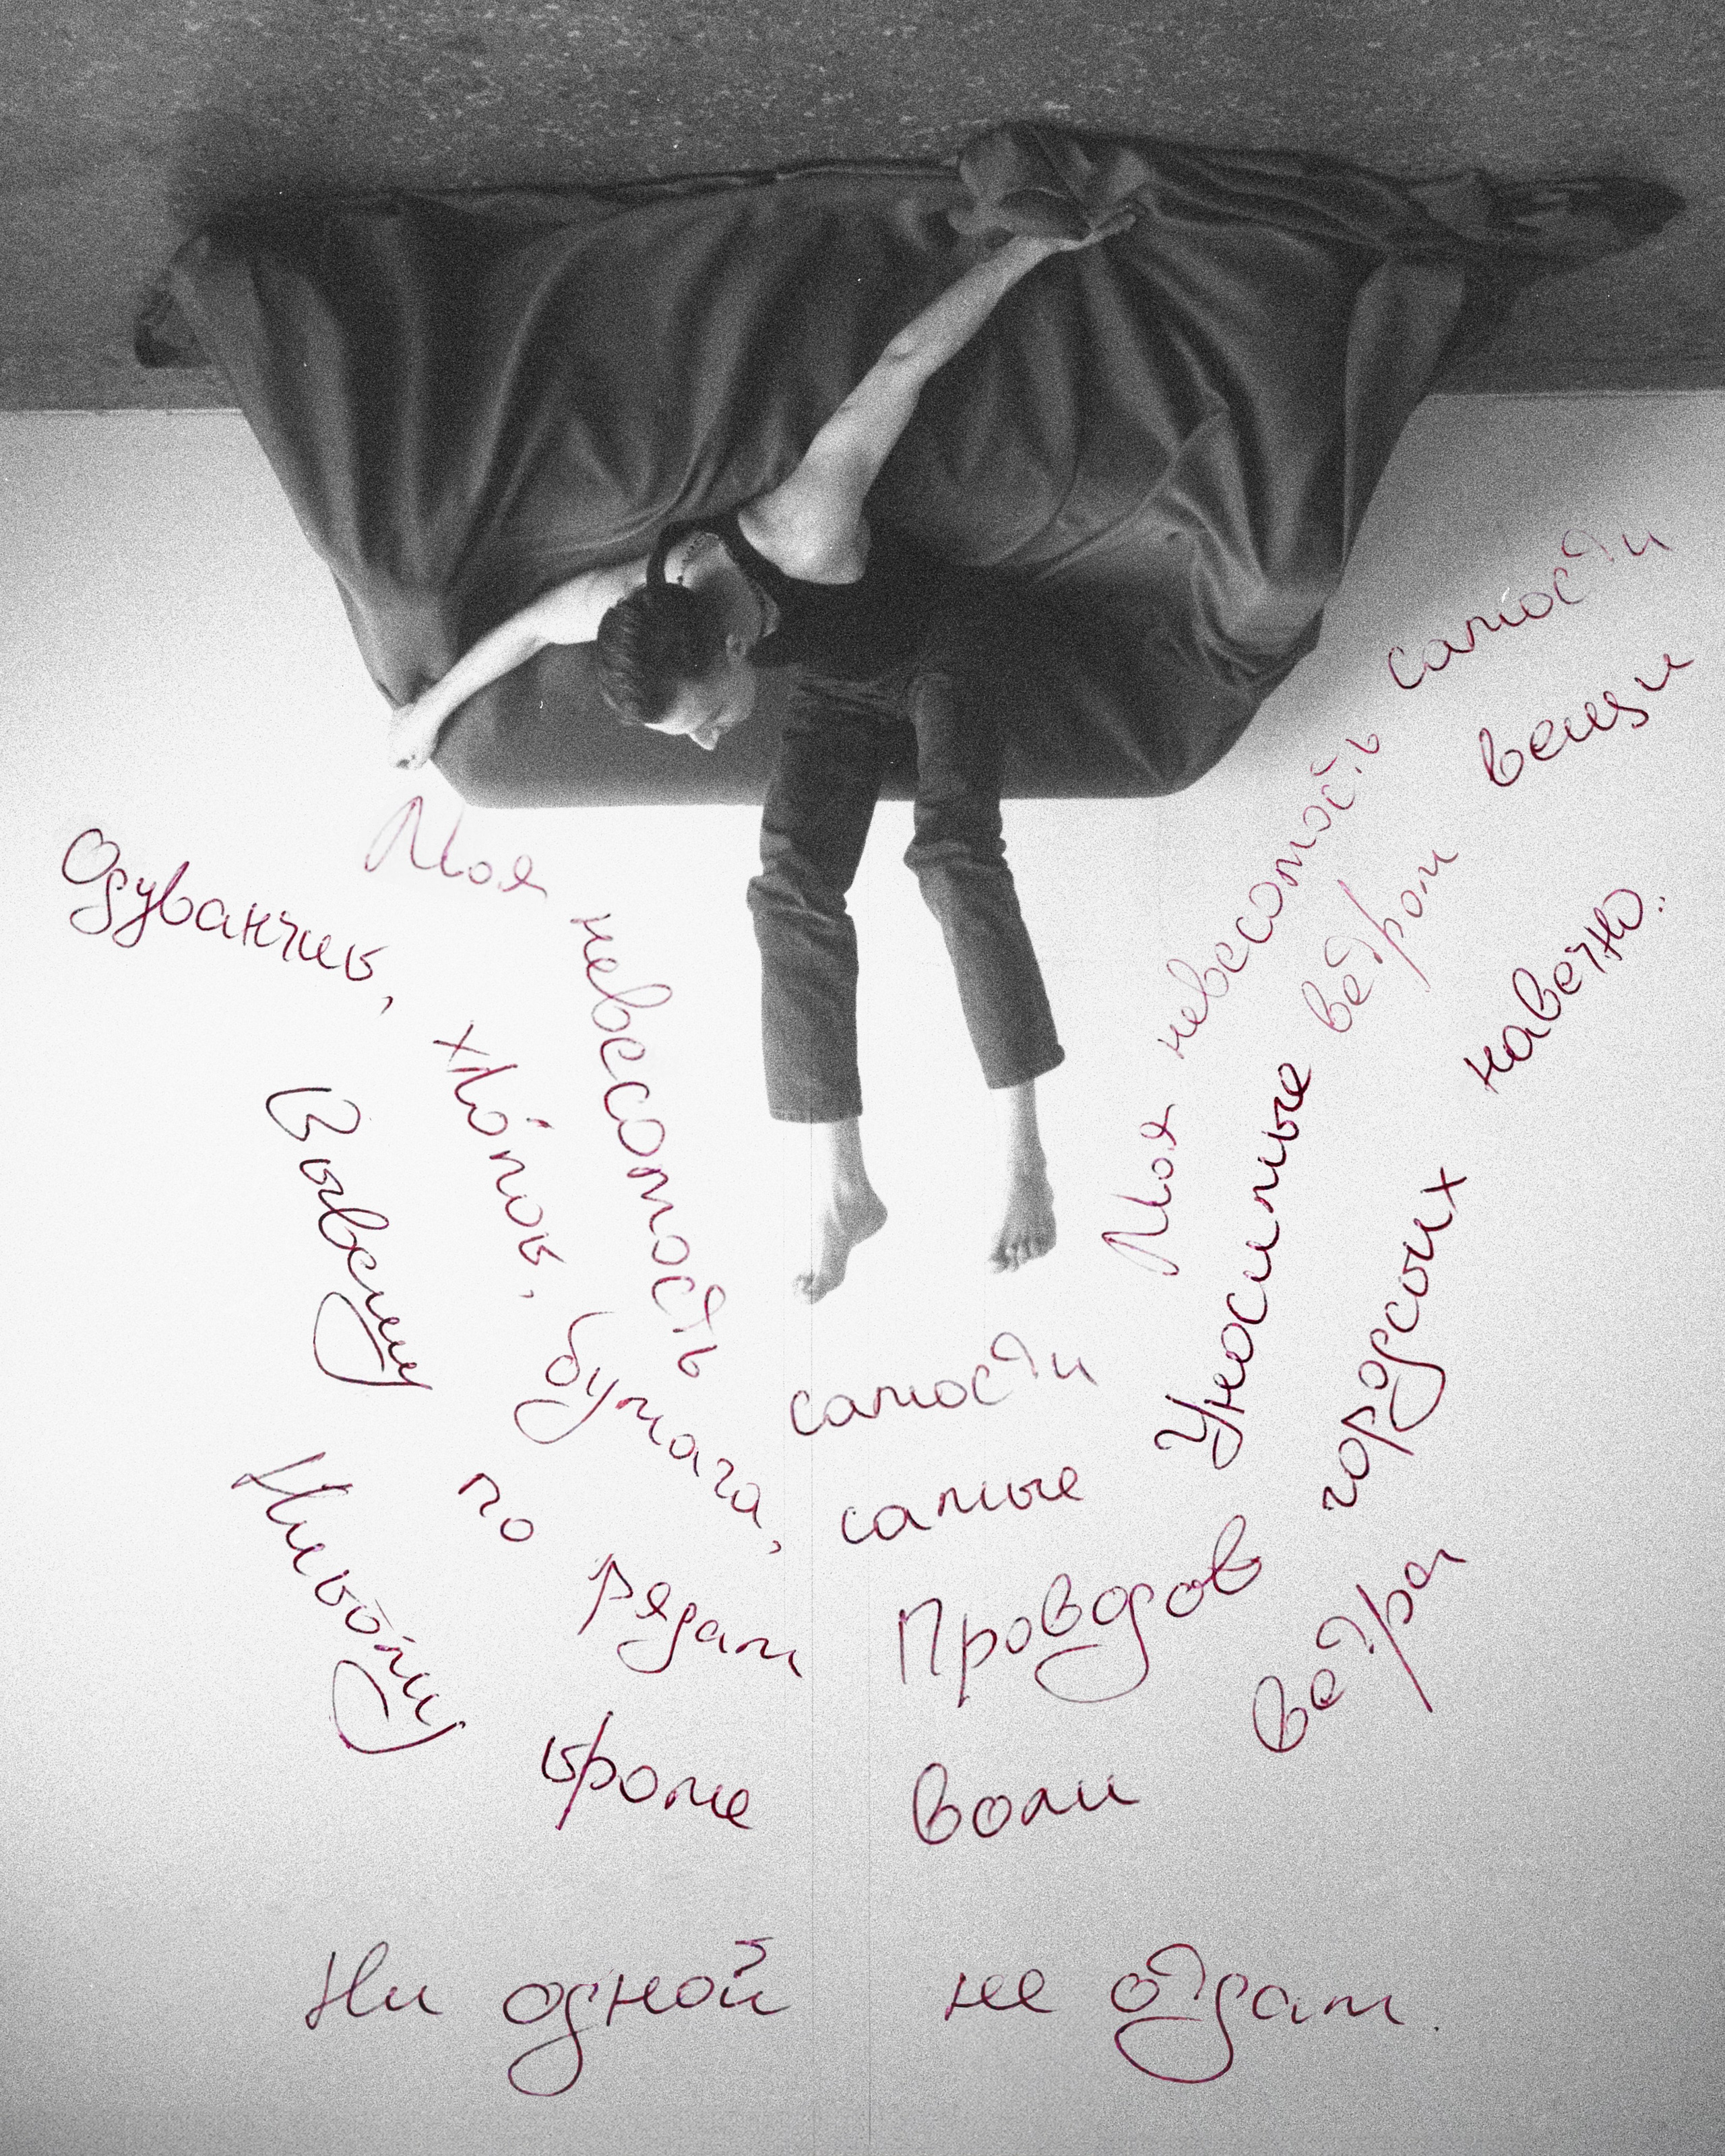 Моя невесомость самости Моя невесомость самости
Одуванчик, хлопок, бумага, самые Уносимые ветром вещи
Вывешу по рядам Проводов городских навечно.
Никому кроме воли ветра
Ни одной не отдам.